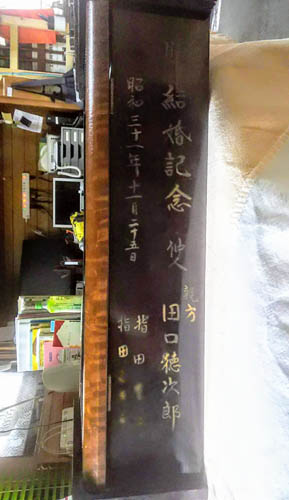 結婚記念 仲人 親方 田口聴次郎
昭和三十一年十一月二十五日
指田
指田